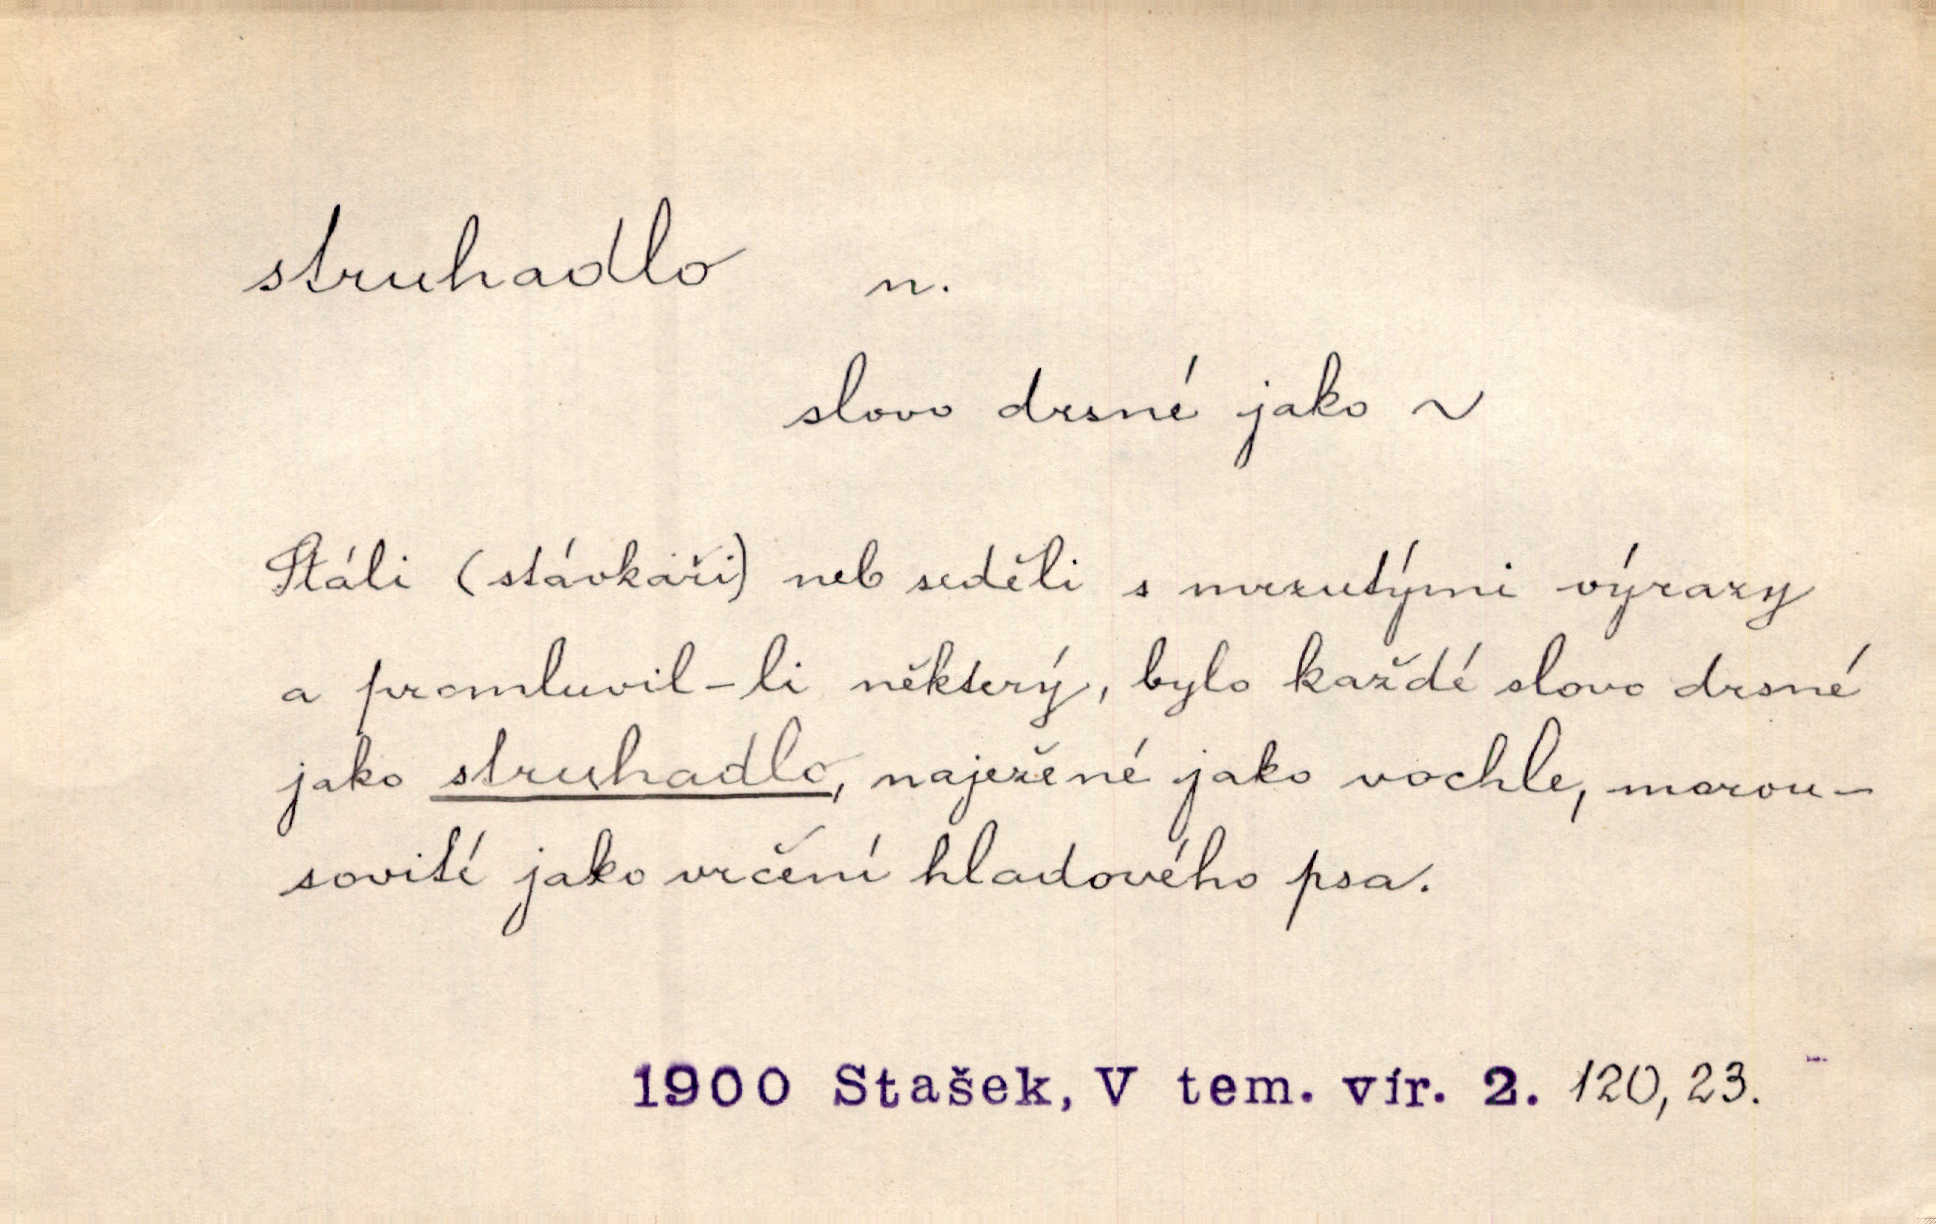 struhadlo n.
slovo drsné jako ~
Stáli (stávkáři) neb seděli s mrzutými výrazy
a promluvil-li některý, bylo každé slovo drsné
jako struhadlo, naježené jako vochle, morou-
sovité jako vrčení hladového psa.
1900 Stašek, V tem. vír. 2. 120, 23.